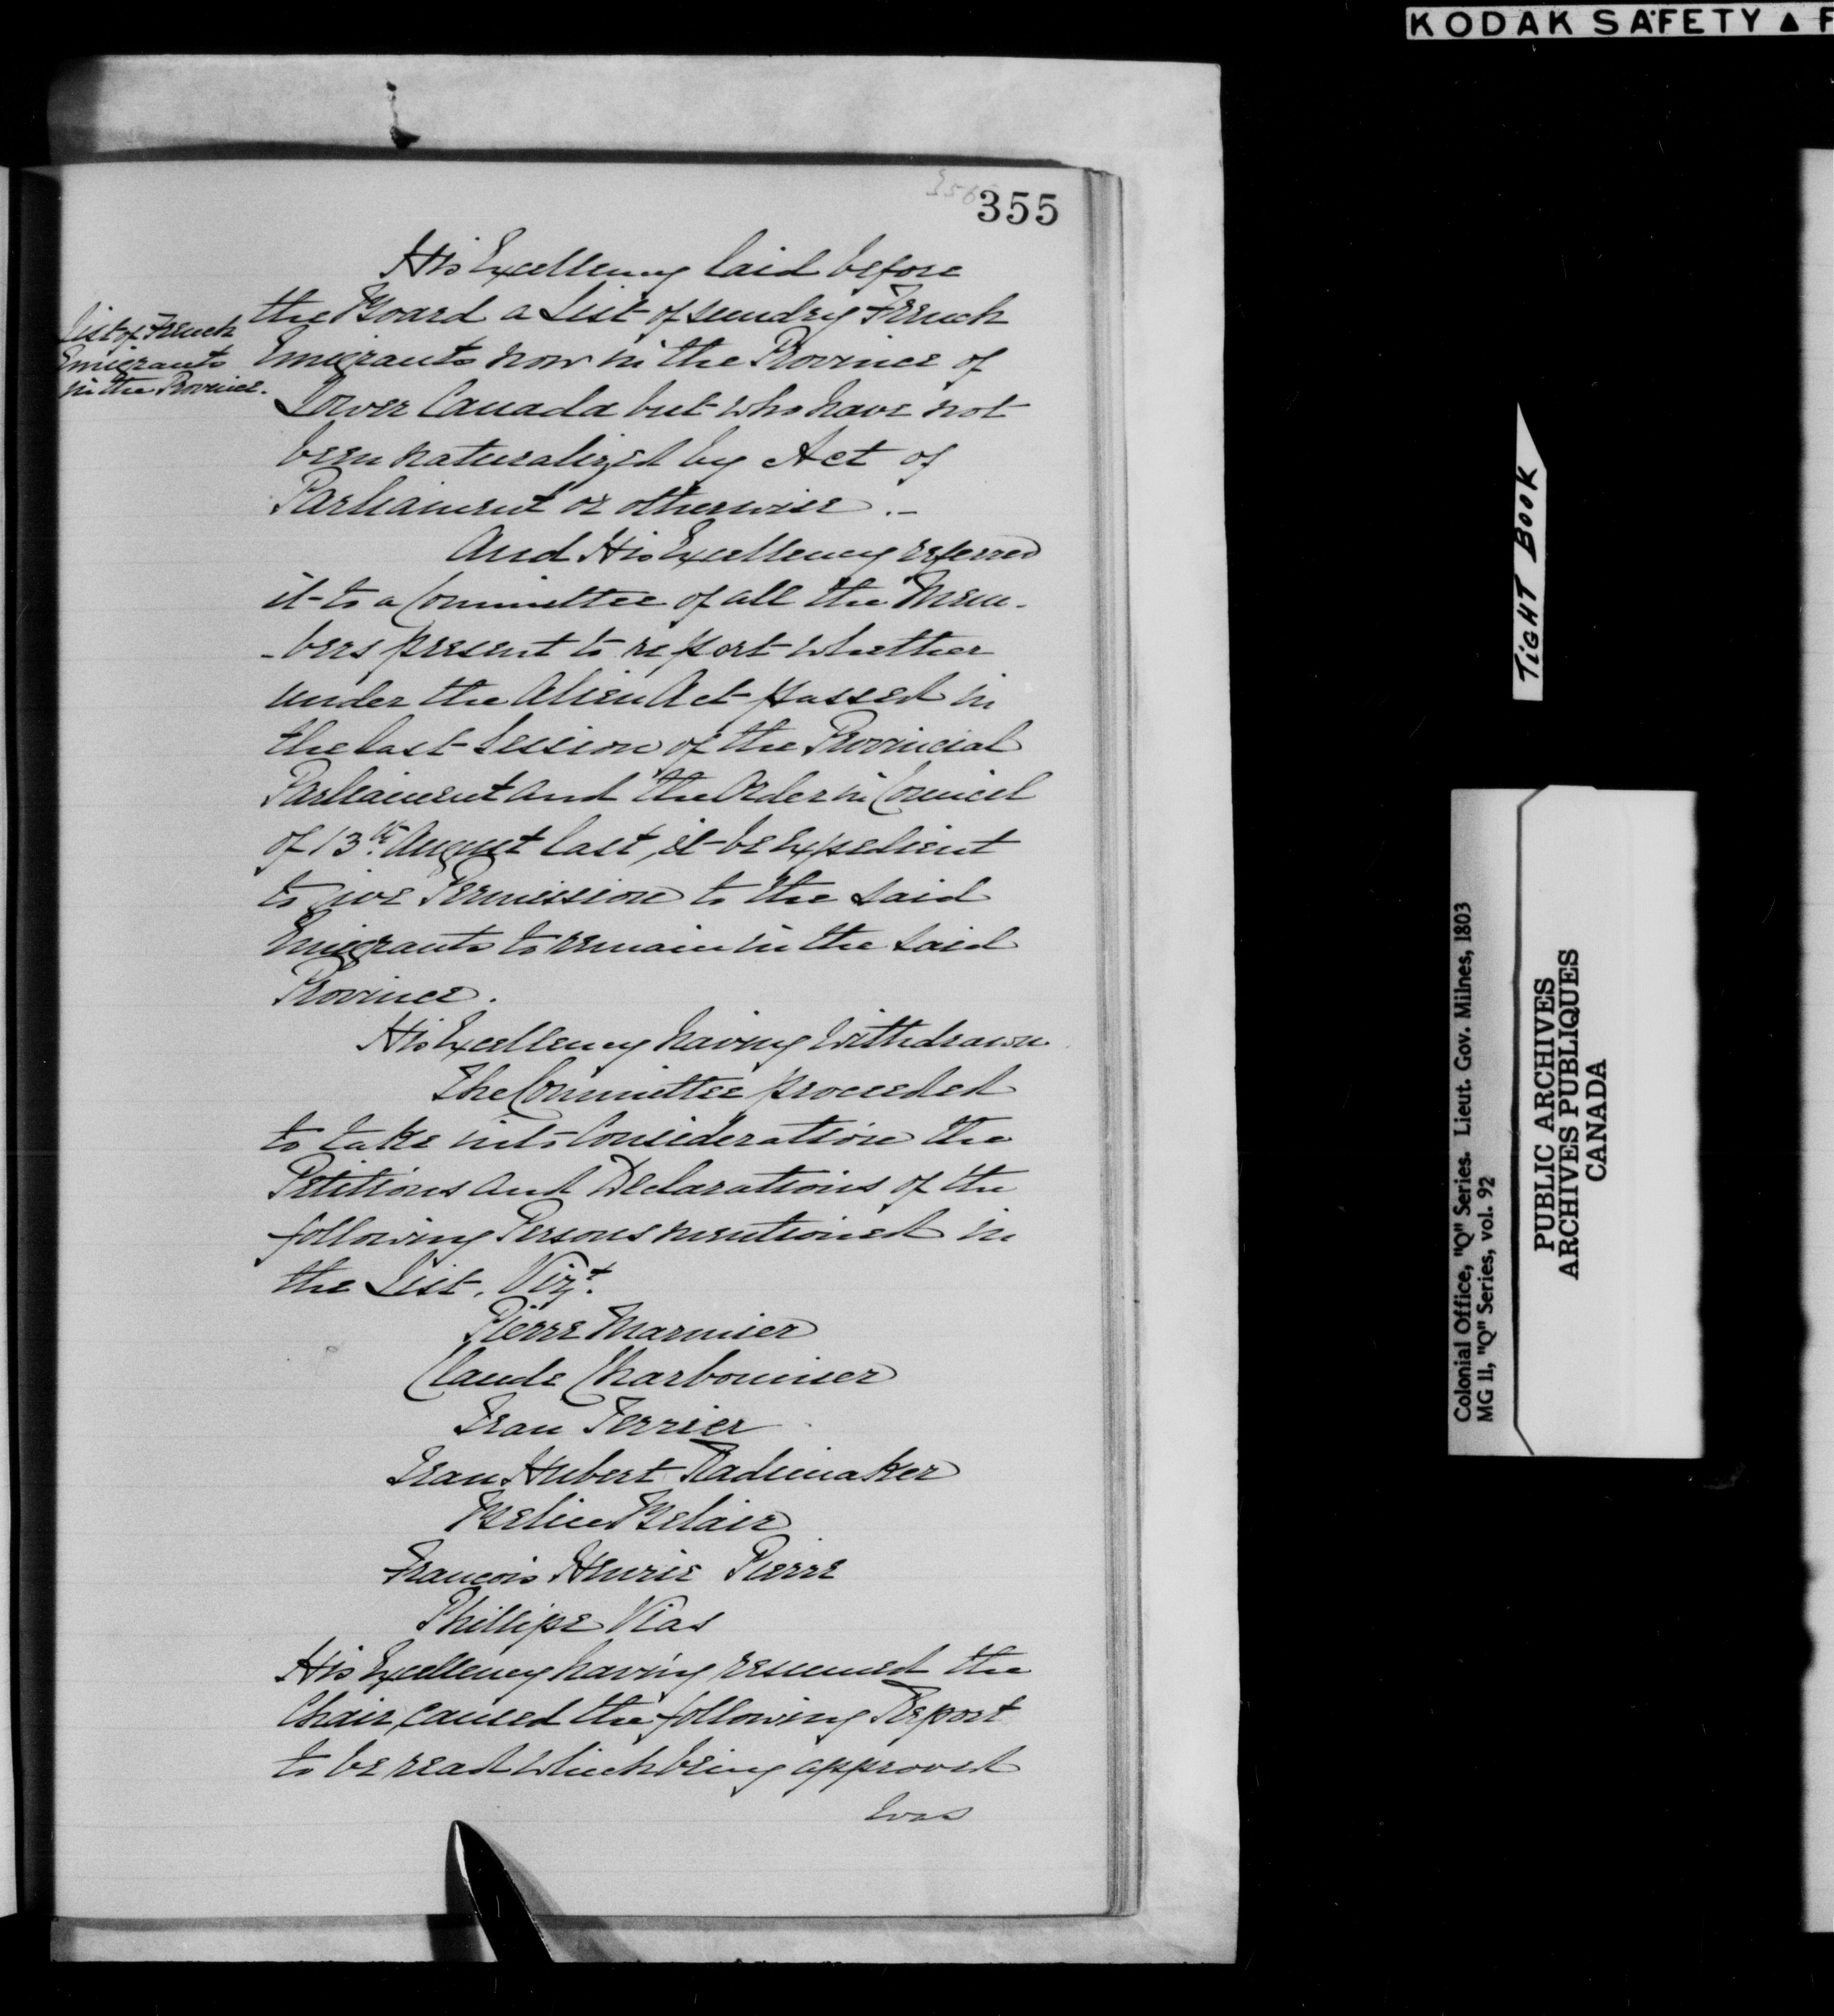 KODAK SAFETY ▲ F
355
His Excellency laid before
the Board a List of sundry French
Emigrants now in the Province of
Lower Canada but who have not
been naturalized by Act of
Parliament or otherwise.-
List of French
Emigrants
in the Province.
And His Excellency referred
it to a Committee of all the Mem-
-bers present to report whether
under the Alien Act passed in
the last Session of the Provincial
Parliament and the Order in Council
of 13th August last, it be expedient
to give Permission to the said
Emigrants to remain in the said
Province.
His Excellency having withdrawn
The Committee proceeded
to take into Consideration the
Petitions and Declarations of the
following Persons mentioned in
the List. Vizt.
Pierre Marmier
Claude Charbonnier
Jean Terrier
Jean Hubert Rademaker
Belin Belair
Francois Henrie Pierre
Phillipe Vias
His Excellency having resumed the
Chair, caused the following Report
to be read which being approved
was
TIGHT BOOK
Colonial Office, "Q" Series. Lieut. Gov. Milnes, 1803
MG 11, "Q" Series, vol. 92
PUBLIC ARCHIVES
ARCHIVES PUBLIQUES
CANADA